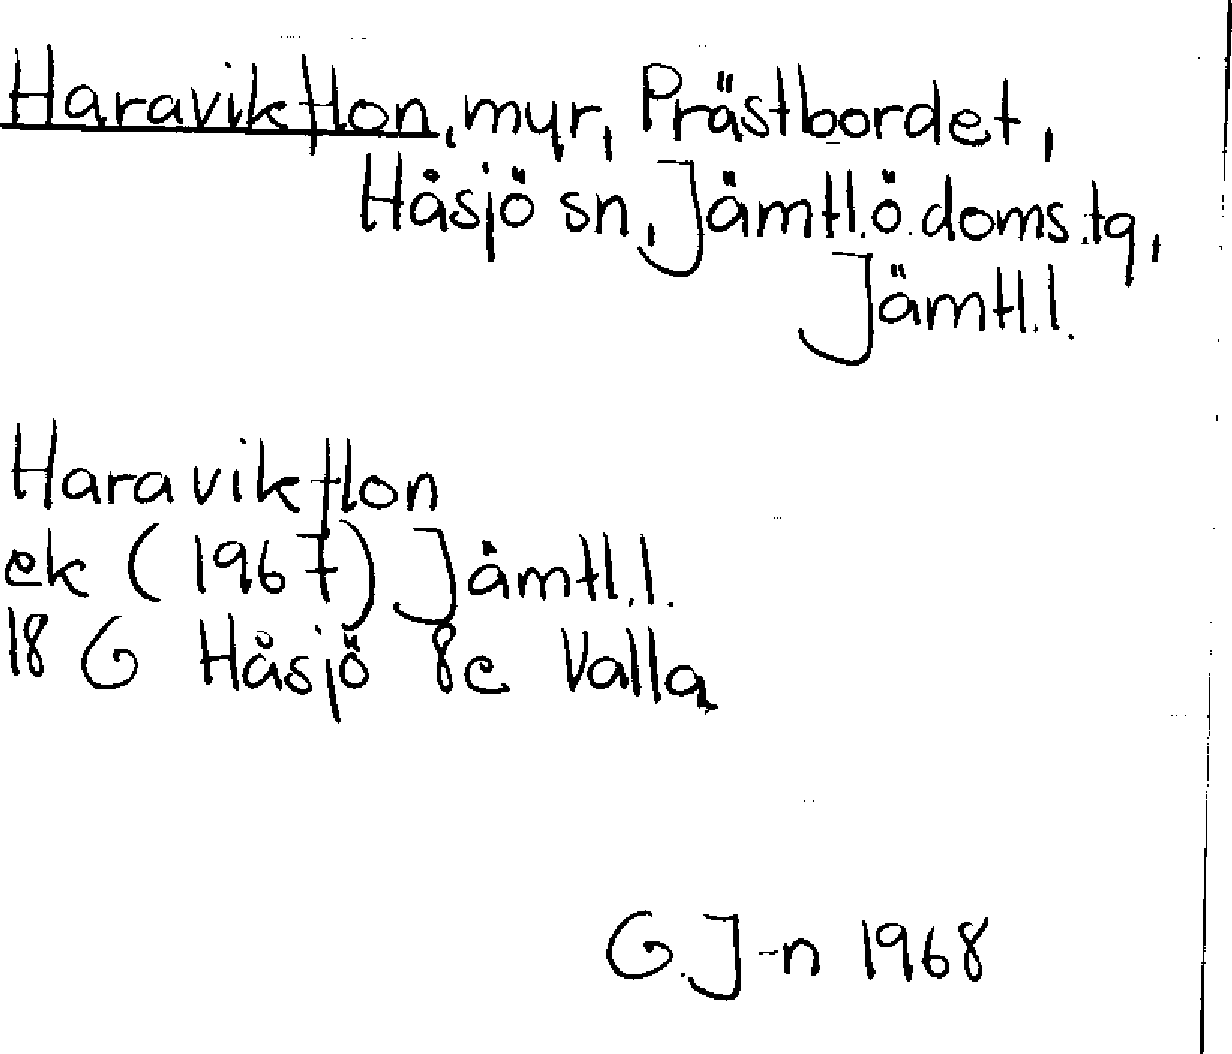 Haravikflon, myr, Prästbordet,
Håsjö sn, Jämtl.ö.doms.tg,
Jämtl.l.
Haravikflon
ek (1967) Jämtl.l.
18 G Håsjö 8c Valla
G.J-n 1968